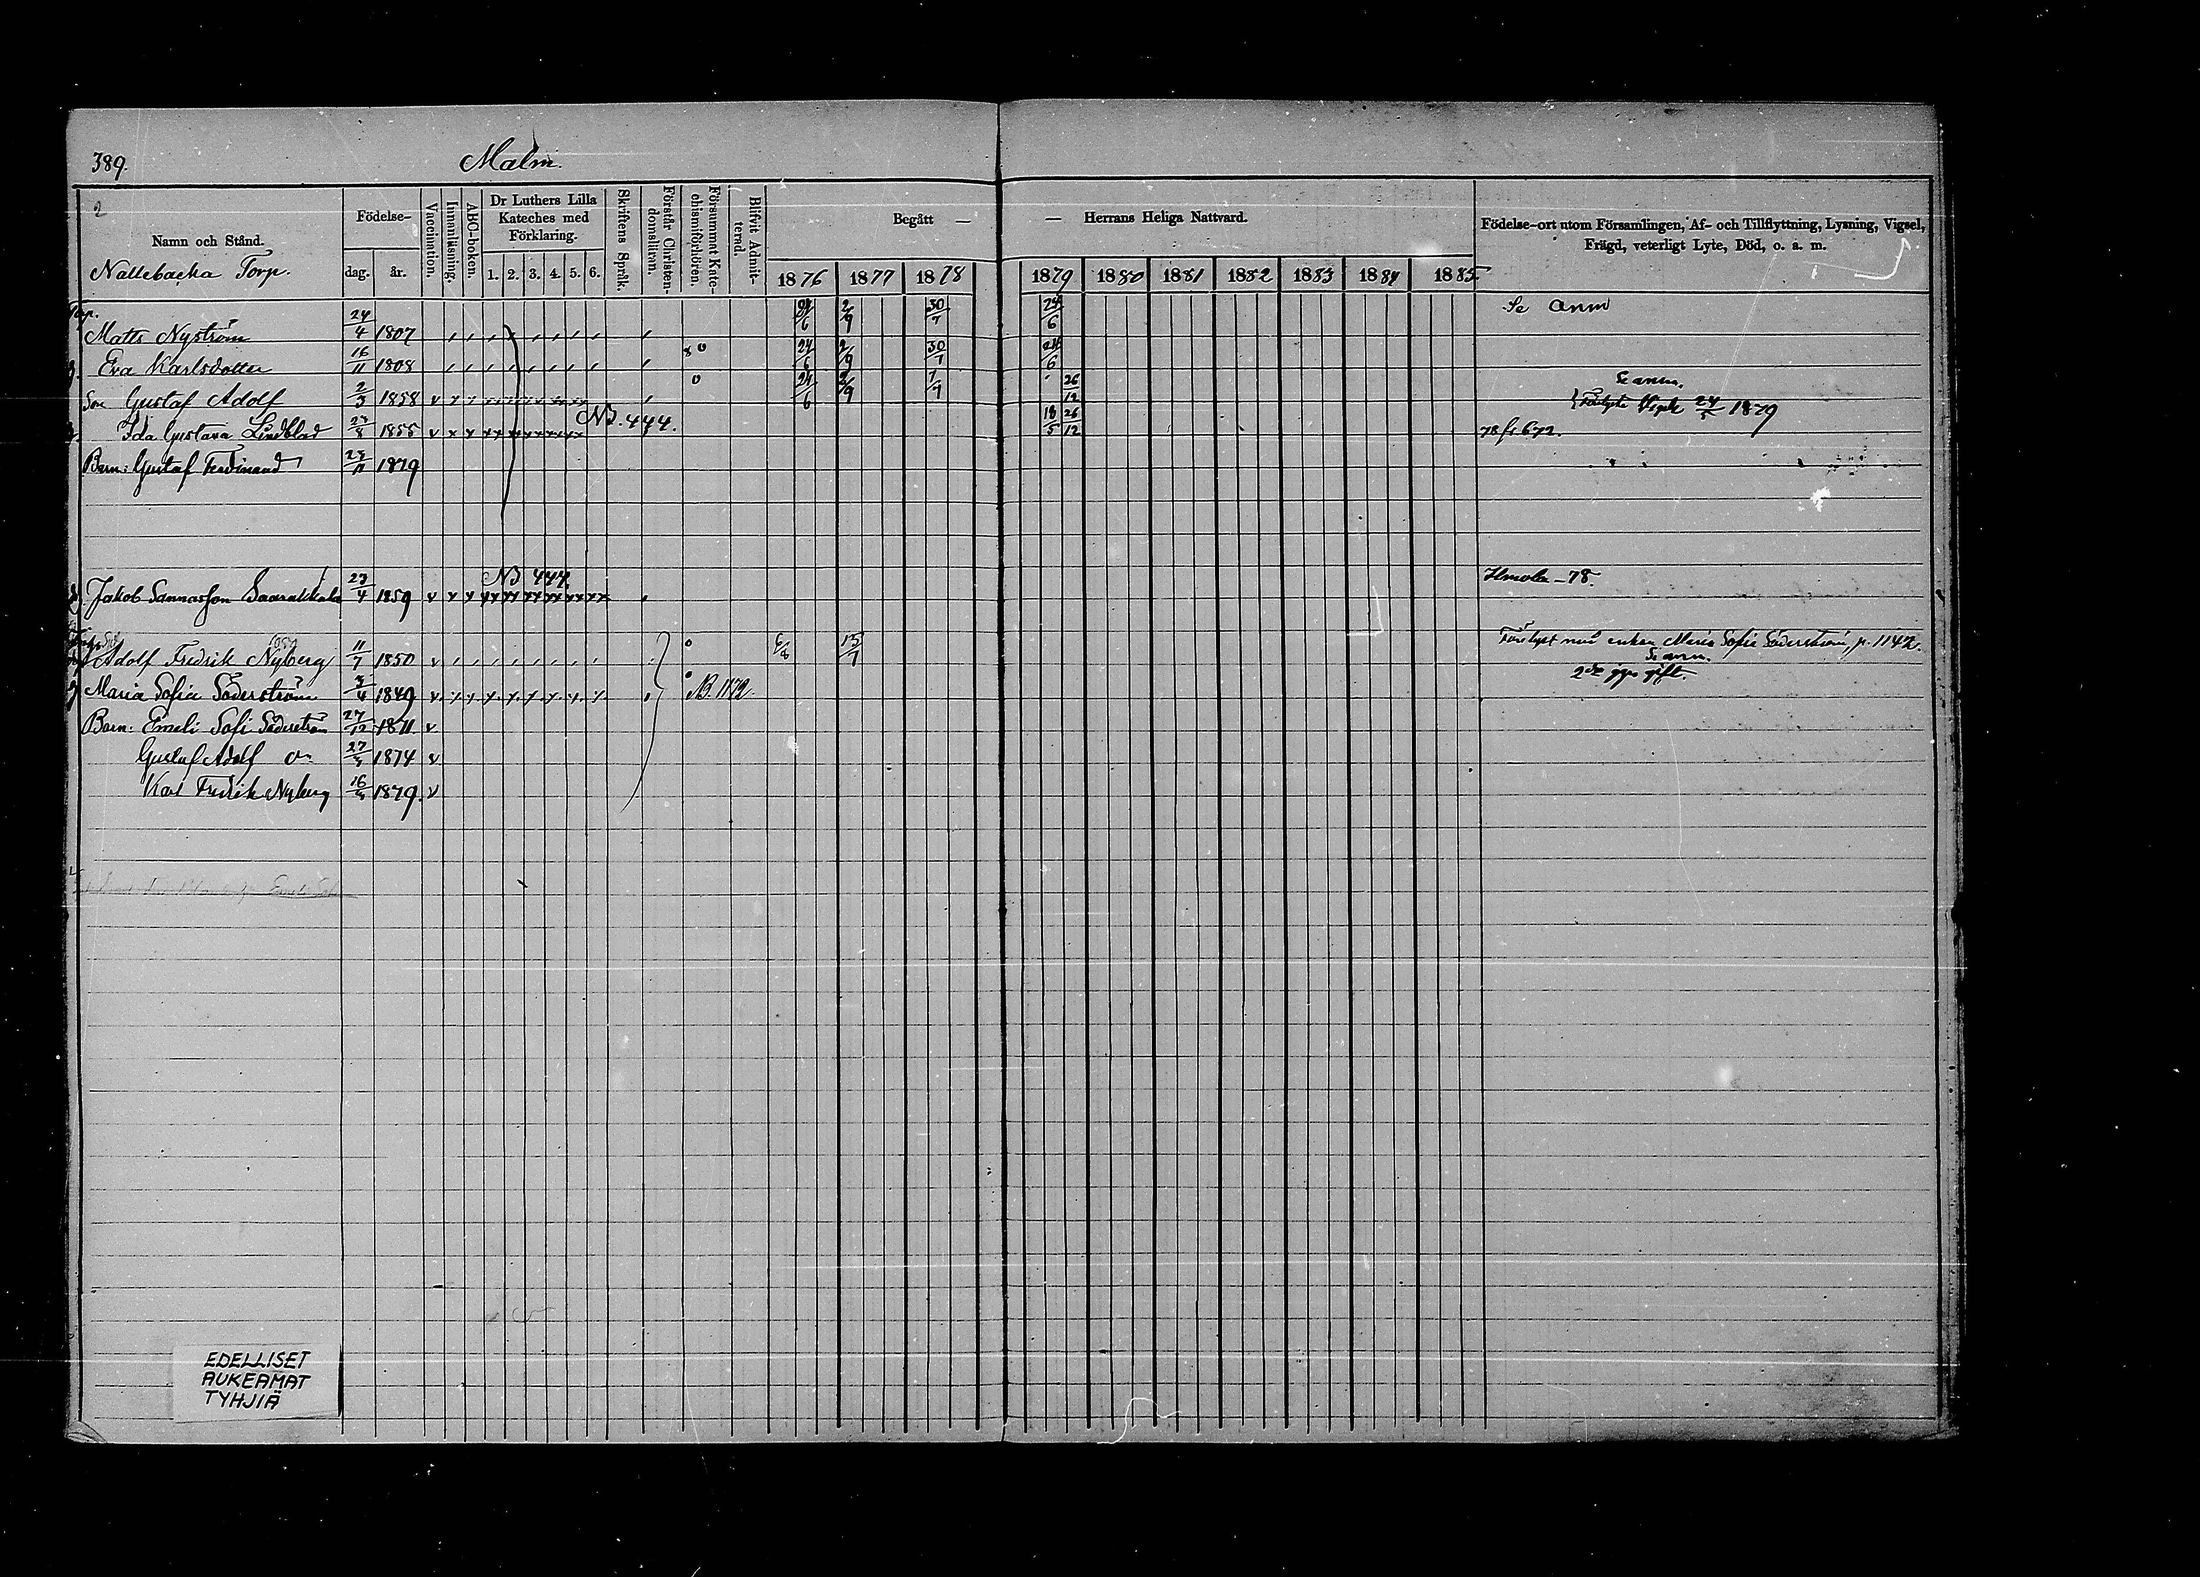 389.
Malm.
2
Namn och Stånd.
Nallebacka Torp.
Födelse-
dag. år.
Vaccination.
Innanläsning.
ABC-boken.
Dr Luthers Lilla Kateches med Förklaring.
1. 2. 3. 4. 5. 6.
Skriftens Språk.
Förstår Christendomsläran.
Försummat Katechismiförhören.
Blifvit Admitterad.
Begått —
1876 1877 1878
— Herrans Heliga Nattvard.
1879 1880 1881 1882 1883 1884 1885
Födelse-ort utom Församlingen, Af- och Tillflyttning, Lysning, Vigsel,
Frägd, veterligt Lyte, Död, o. s. m.
Torp.
Matts Nyström 24/4 1807 24/6 2/9 30/7 24/6 Se anm
Eva Karlsdotter 16/11 1808 24/6 2/9 30/7 24/6
Son Gustaf Adolf 2/3 1858 24/6 2/9 7/7 26/12 Se anm.
Vigde 24/5 1879
Ida Gustava Lindblad 1855 NB. 444. 18/5 26/12 78 fr 672.
Barn: Gustaf Ferdinand 1879
NB 444.
Jakob Sannasson Saarukkala 23/4 1859 Ilmola -78.
Adolf Fredrik Nyberg 11/7 1850 6/8 15/7 Förlyst med enkan Maria Sofia Söderström, p. 1142.
Se anm.
2dra ggn gift.
Maria Sofia Söderström 3/4 1849 NB. 1142
Barn: Emeli Sofi Söderström 27/12 1871
Gustaf Adolf 1874
Karl Fredrik Nyberg 1879.
EDELLISET
AUKEAMAT
TYHJIÄ